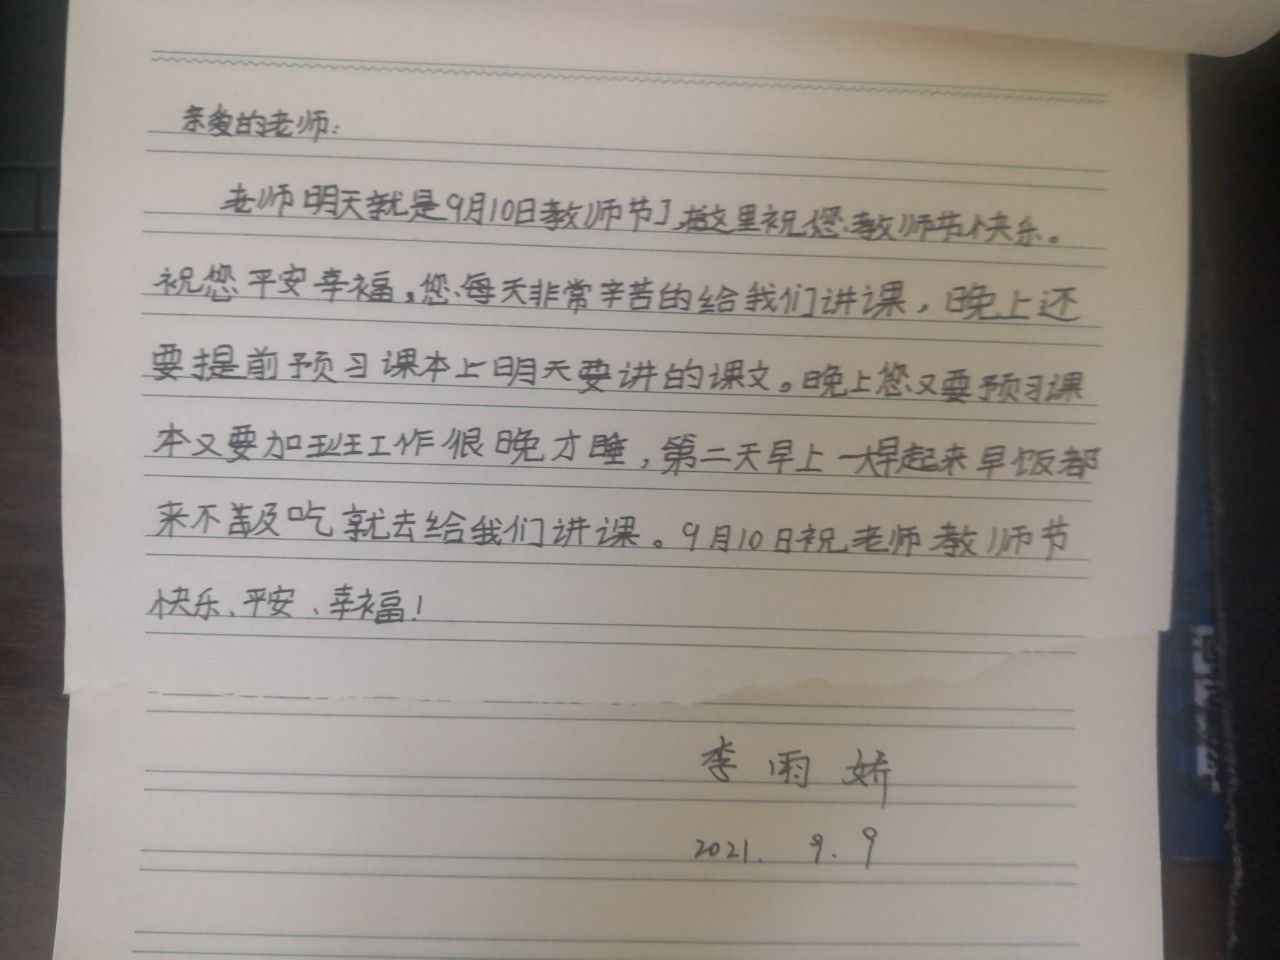 亲爱的老师:
老师明天就是9月10日教师节了,在这里祝您教师节快乐。
祝您平安幸福,您每天非常辛苦的给我们讲课,晚上还
要提前预习课本上明天要讲的课文。晚上您又要预习课
本又要加班工作很晚才睡,第二天早上一大早起来早饭都
来不及吃就去给我们讲课。9月10日祝老师教师节
快乐、平安、幸福!
李雨娇
2021. 9. 9